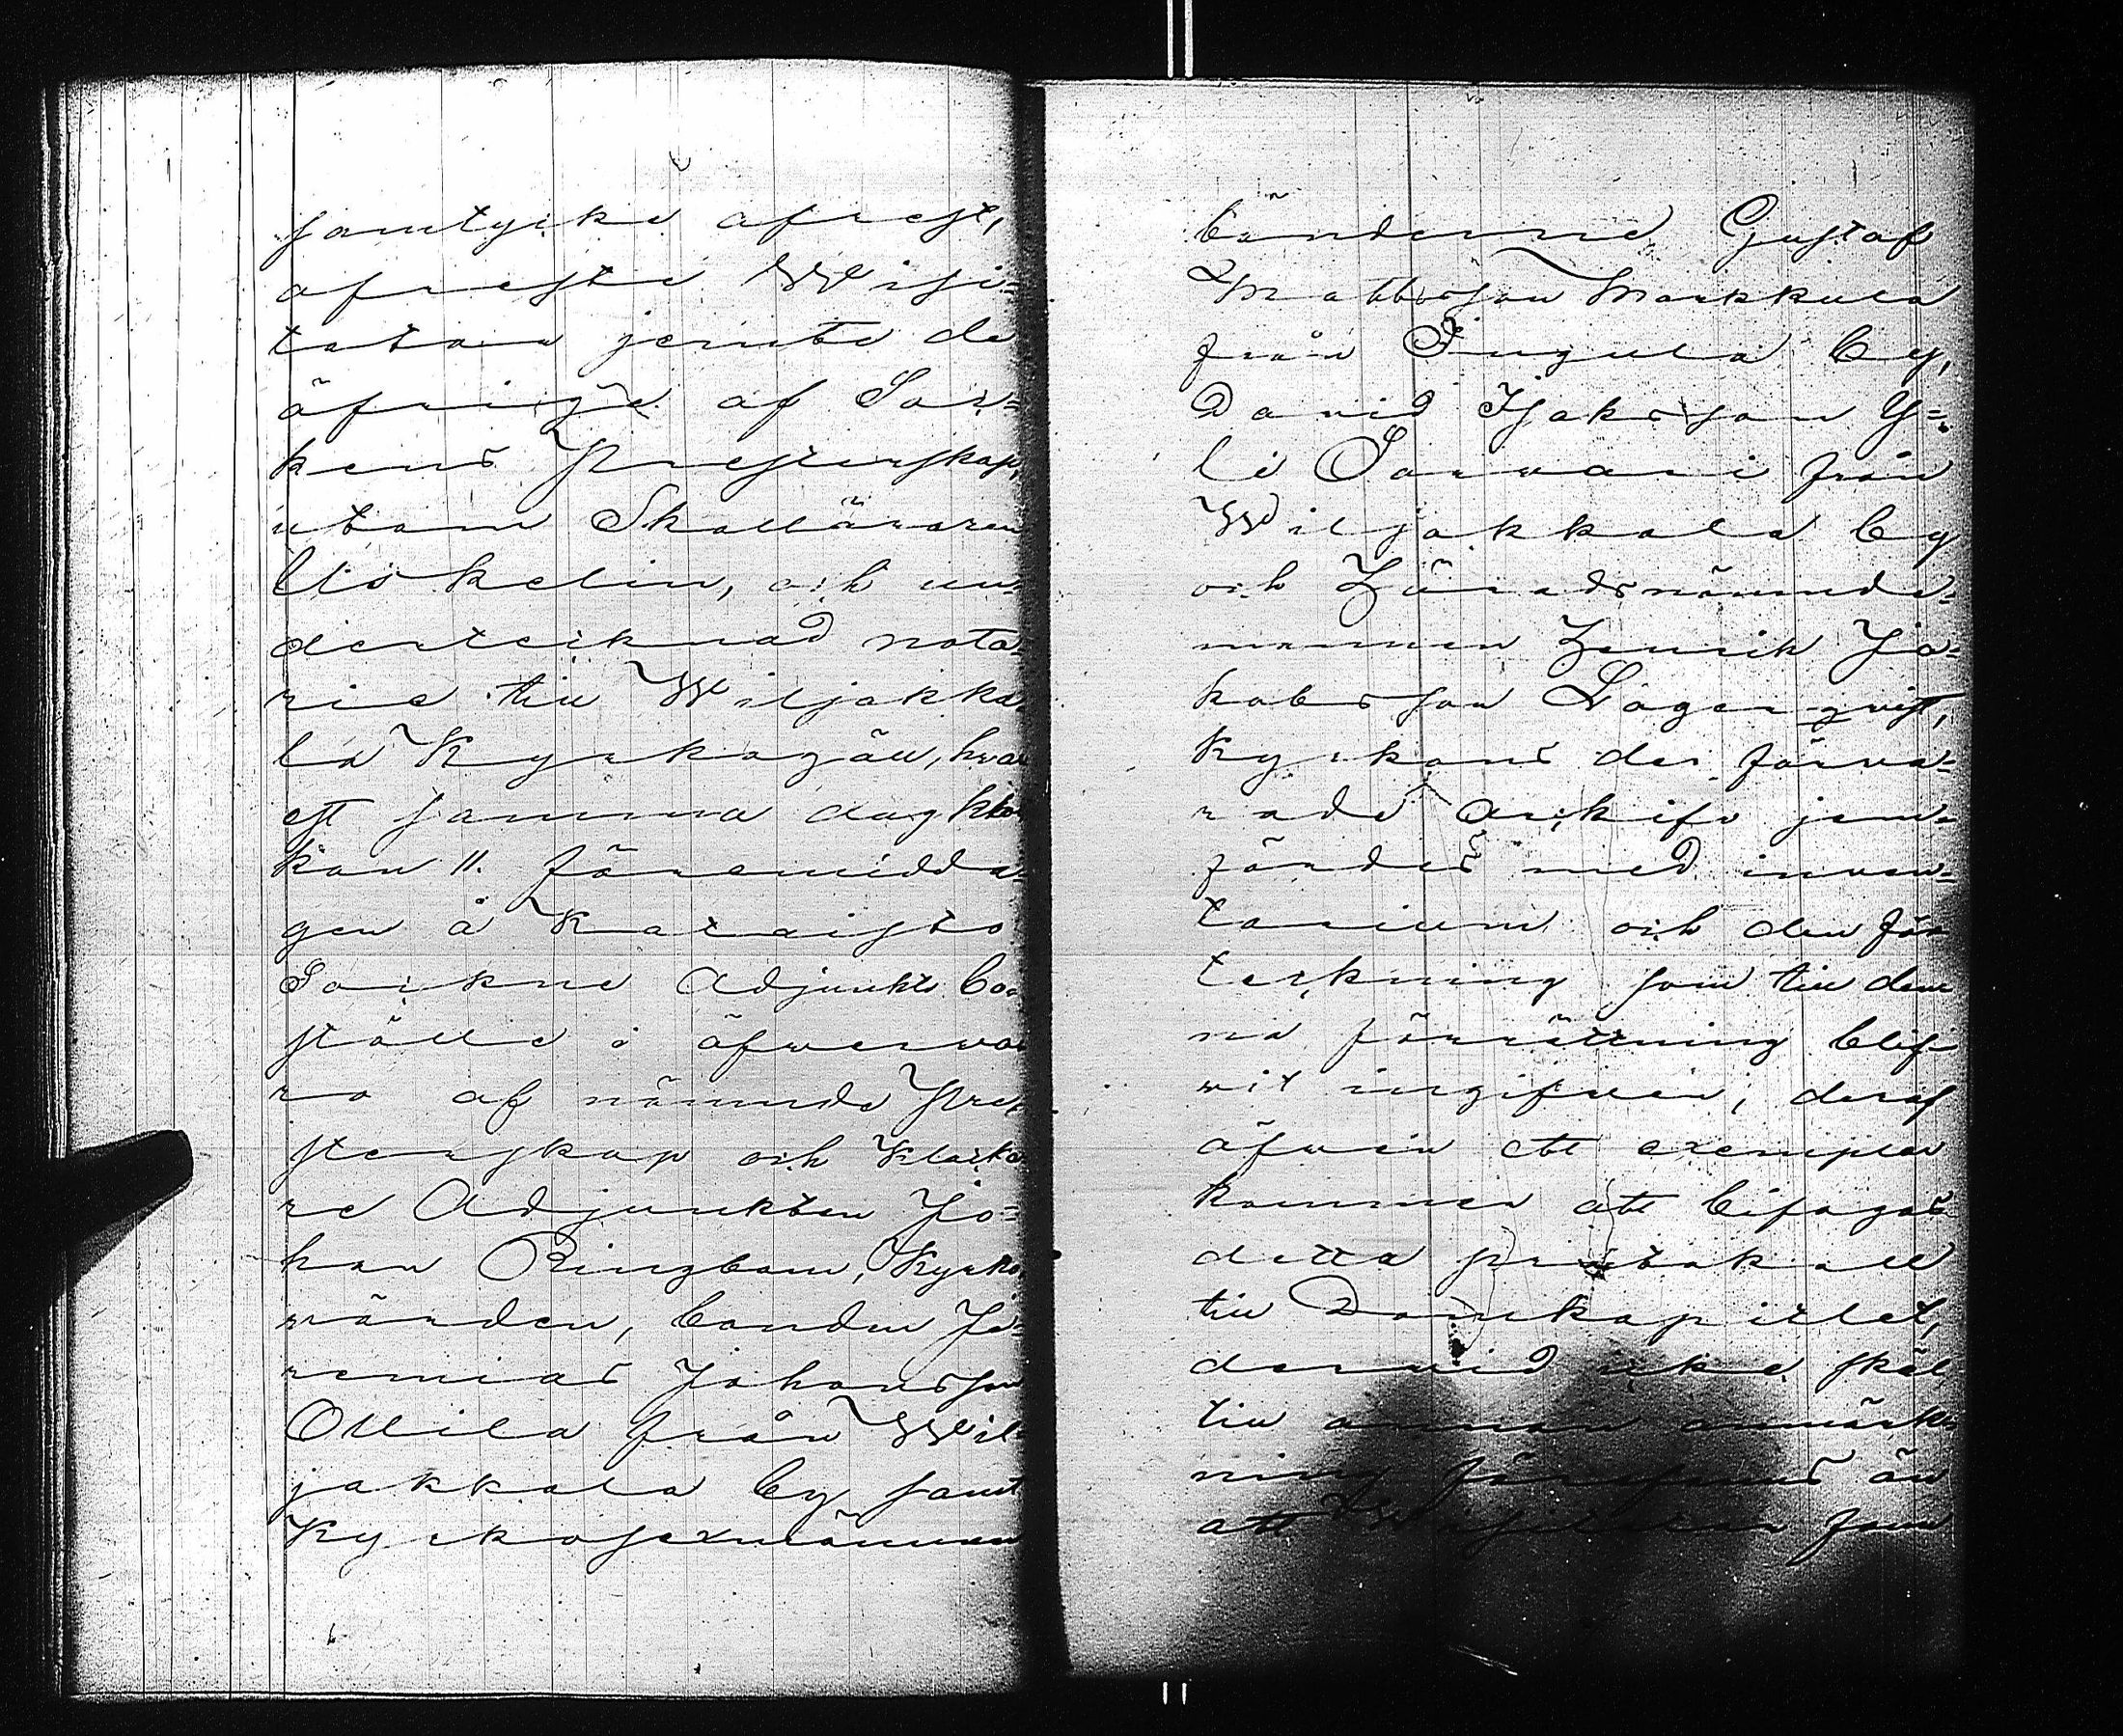 samtycke afrest,
afreste Wisi-
tator jemte de
öfrige af Sor-
kens Presterskap,
utom Skolläraren
Uskelin, och un-
dertecknad nota-
rie till Wiljakka-
la Kyrkogäll, hvar
est samma dag klo-
kan 11. föremidda-
gen å Karaisto
Sockne Adjunkts bo-
ställe i öfwerva-
ro af nämnde Pre-
sterskap och Klocka-
re Adjunkten Jo-
han Ringbom, Kyrko
wärden, bonden Je-
remias Johansson
Ollila från Wil-
jakkala by samt
Kyrkosexmännen
bönderne Gustaf
Mattsson Markkula
från Ingula by,
David Isaksson Y-
li Sarvari från
Wiljakkala by
och Häradsnämnde-
mannen Henrik Ja-
kobsson Lagerqvist,
Kyrkans der förva-
rade Arkifv jem-
fördes med inven-
tarium och den för
teckning som till den
na förrättning blif-
wit ingifwen, deraf
äfwen ett exemplar
kommer att bifogas
detta protokoll
till Domkapitlet,
dervid icke skäl
till annan anmärk-
ning förefanns än
att Wisitator fann